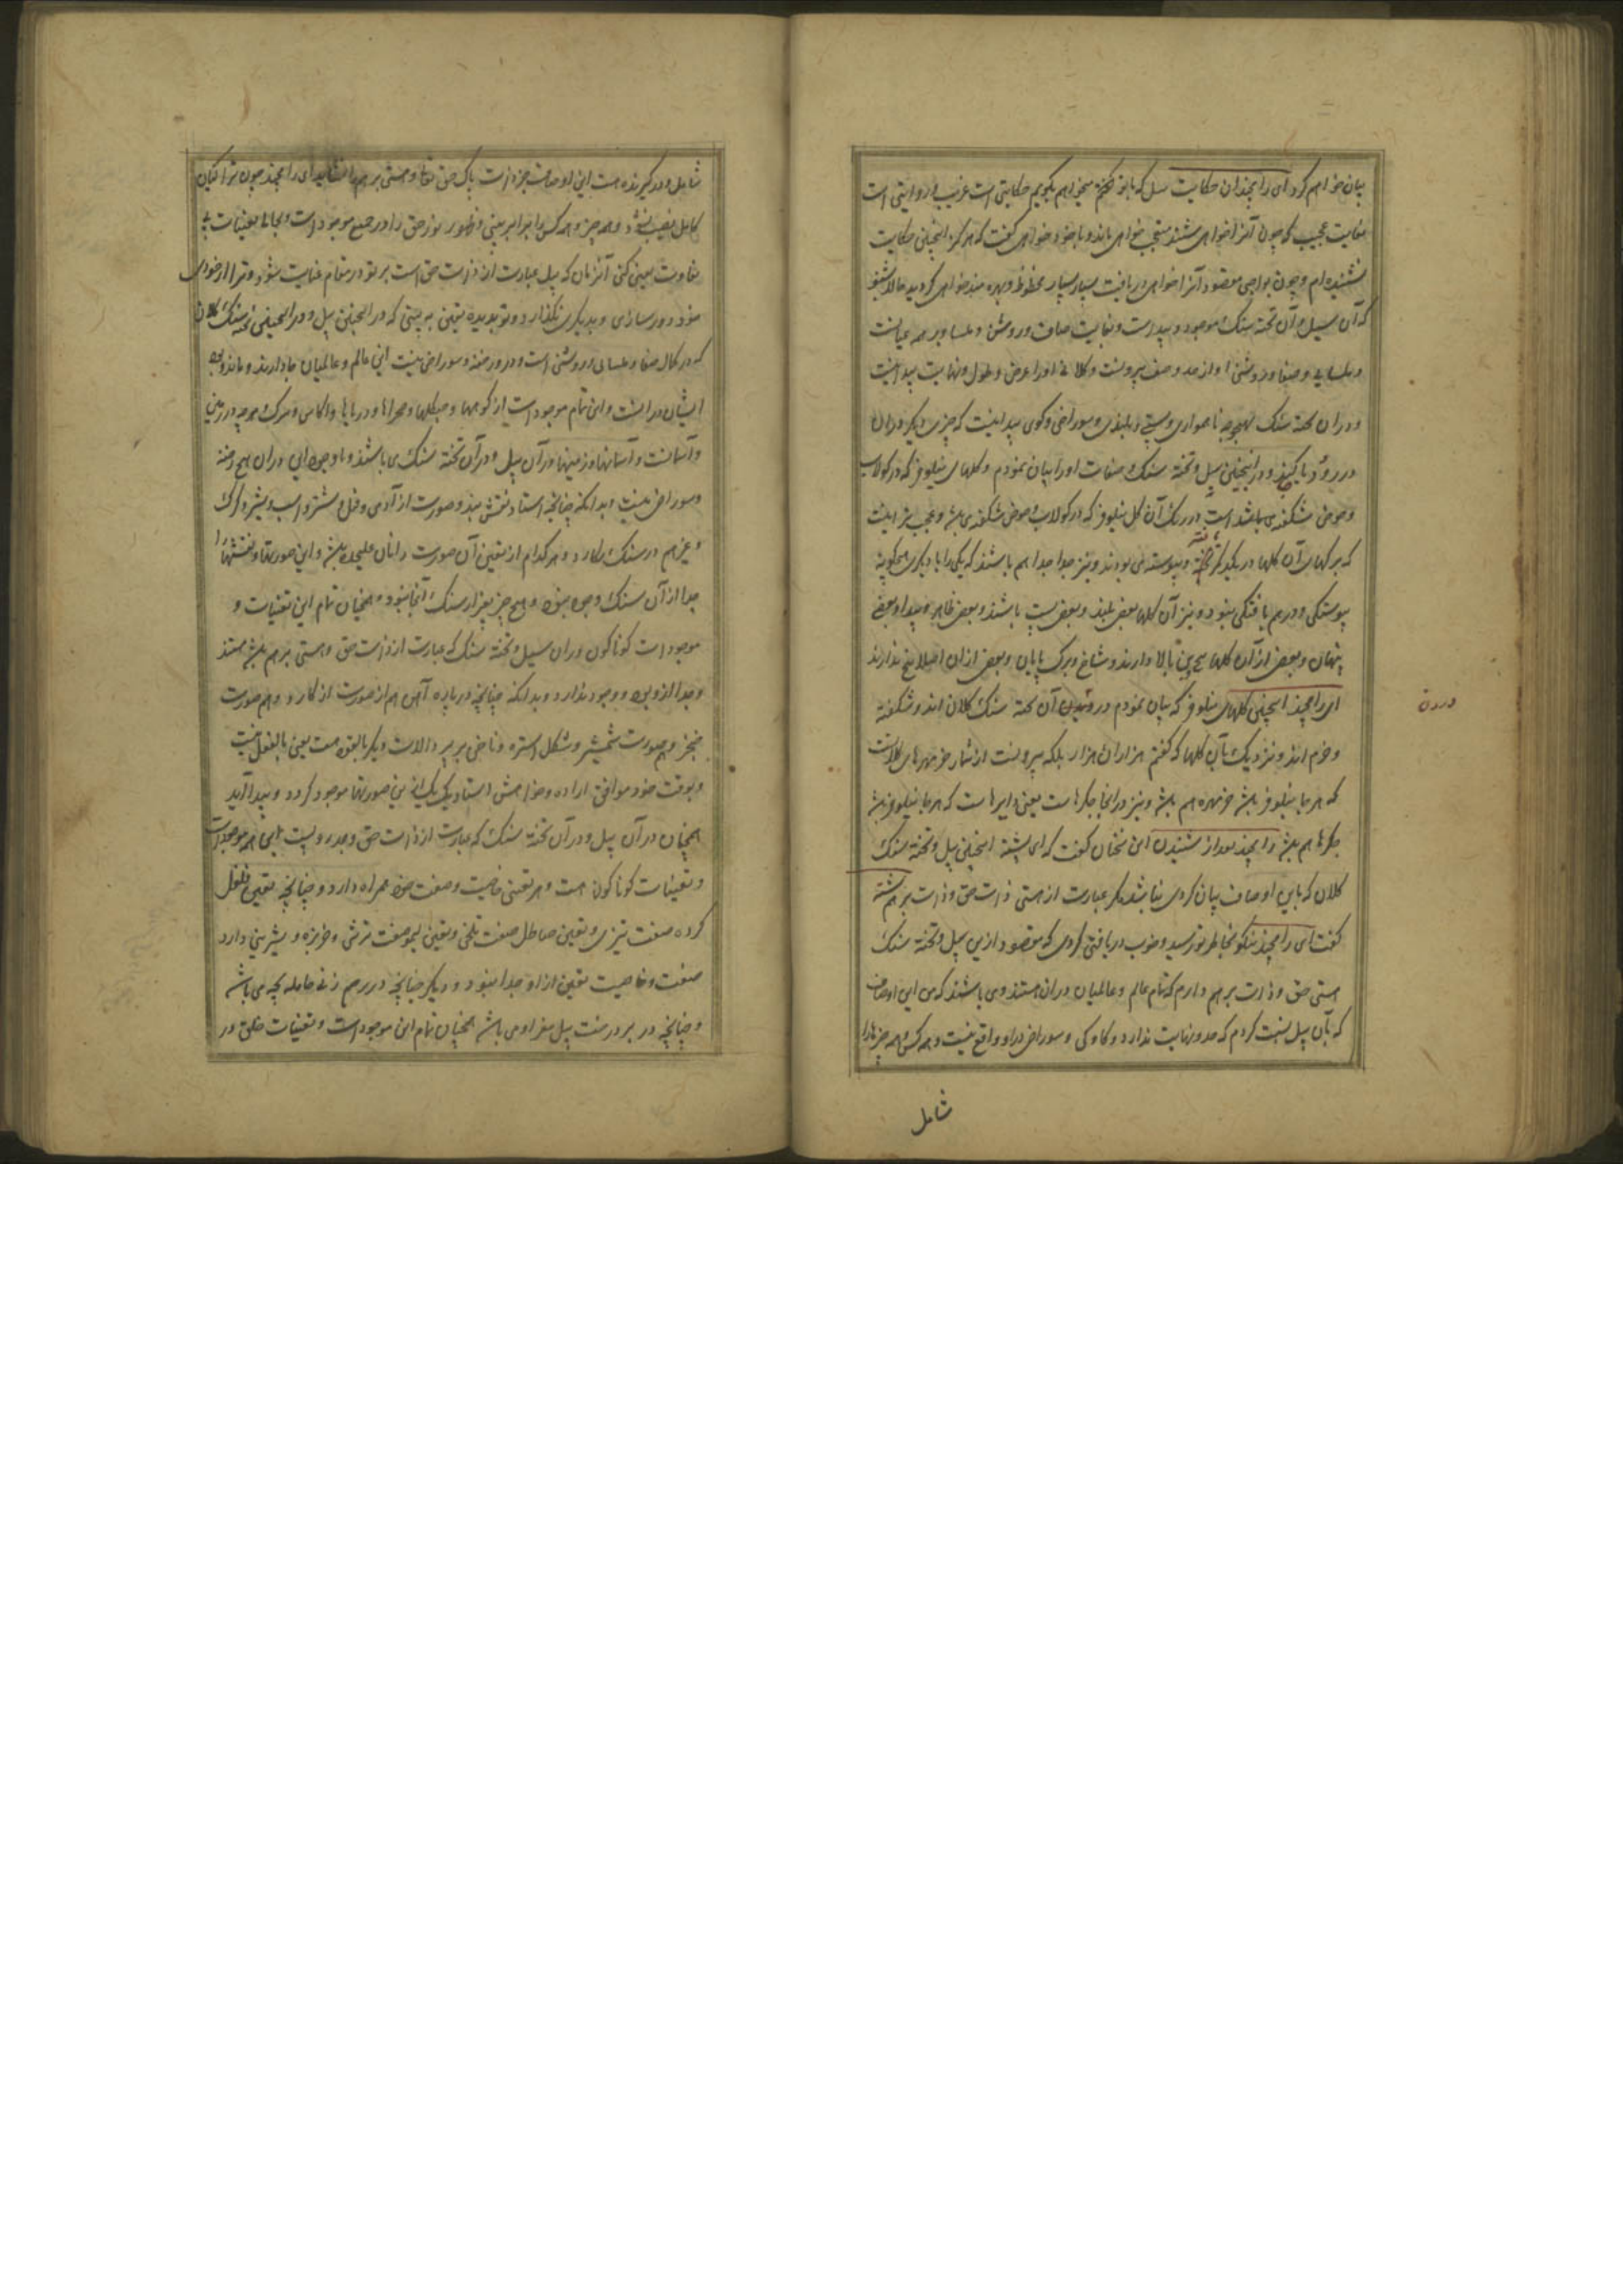 بیان خواهم کرد ای رامچند این حکایت سل که با تو گفتم میخواهم بگویم حکایتی است غریب و روایتی است
بغایت عجیب که چون آنرا خواهی شنید متعجب خواهی ماند و با خود خواهی گفت که هرگز اینچنین حکایت
نشنیده ام و چون بواجبی مقصود آنرا خواهی دریافت بسیار بسیار محظوظ و بهره مند خواهی گردید حالا بشنو
که آن سیل و آن تخته سنگ موجود و پیداست و بغایت صاف و روشن و ملسا و بر همه عیانست
و ملسایی و صفا و روشنی او از حد وصف بیرونست و کلانی او را عرض و طول و نهایت پیدا نیست
و در آن تخته سنگ بهیچ وجه ناهمواری و پستی و بلندی و سوراخی و کوی پیدا نیست که چیزی دیگر در آن
در رود یا کنید و در اینچنین سل و تخته سنگ که صفات او را بیان نمودم و گلهای نیلوفر که در کولاب
و حوض شکفته می باشد است در رنگ آن گل نیلوفر که در کولاب و حوض شکفته می باشد و عجب تر اینست
که برگهای آن گلها در یکدیگر و پیوسته می بودند و نیز جدا جدا هم باشند که یکی را با دیگری هیچگونه
پیوستگی و درهم بافتگی نبود و نیز آن گلها بعضی بلند و بعضی پست باشند و بعضی ظاهر و پیدا و بعضی
پنهان و بعضی از آن گلها بیخ بالا دارند و شاخ و برگ پایان و بعضی از آن اصلا بیخ ندارند
ای رامچند اینچنین گلهای نیلوفر که بیان نمودم در آن تخته سنگ کلان اند و شکفته
درون
و خرم اند و نزدیک بآن گلها که گفتم هزاران هزار بلکه بیرونست از شمار خرمهره های کلانست
که هر جا نیلوفر باشد خرمهره هم باشد و نیز در اینجا چکرها ست یعنی دایرها ست که هر جا نیلوفر باشد
چکرها هم باشد رامچند بعد از شنیدن این سخنان گفت که ای بشسته اینچنین سل و تخته سنگ
کلان که باین اوصاف بیان کردی نباشد مگر عبارت از هستی ذات حق و ذات برهم بشسته
گفت ای رامچند نیکو بخاطر تو رسید و خوب دریافتی کردی که مقصود از این سل و تخته سنگ
هستی حق و ذات برهم دارم که تمام عالم و عالمیان در آن هستند و می باشند که من این اوصاف
که بآن سل نسبت کردم که حد و نهایت ندارد و کاوکی و سوراخی در او واقع نیست و همه کس و همه چیزها را
شامل
شامل و درگیرنده است این اوصاف جز ذات پاک حق تعالی و هستی برهم را نشاید ای رامچند چون ترا گیان
کامل نصیب شود و همه چیز و همه کس را برابر بینی و ظهور نور حق را در جمیع موجودات و بجا با تعینات بی
تفاوت معین کنی آنزمان که سل عبارت از ذات حق است بر تو در مقام عنایت شود و ترا از خودی
خود دور سازی و بدیگری نگذارد و تو بدیده یقین به بینی که در اینچنین سل و در اینچنین تخته سنگ کلان
که در کمال صفا و ملسایی و روشنی است و در او رخنه و سوراخی نیست این عالم و عالمیان جا دارند و مانند و بود
ایشان در آنست و این تمام موجودات از کوهها و جنگلها و صحراها و دریاها و اکاس و مرگ و هرچه در زمین
و آسمانست و آسمانها و زمینها در آن سل و در آن تخته سنگ می باشند و با وجود این در آن هیچ رخنه
و سوراخی نیست و بدانکه چنانچه استاد نقش بند و صورت از آدمی و فیل و شتر و اسب و شیر و گرگ
و غیرهم در سنگ نگارد و هر کدام از تعین آن صورت را نام علیحده باشد و این صورتها و نقشها را
جدا از آن سنگ وجود نبود و هیچ چیز بغیر از سنگ آنجا نبود همچنان تمام این تعینات و
موجودات گوناگون در آن سیل و تخته سنگ که عبارت از ذات حق و هستی برهم باشد هستند
و جدا از او بود و وجود ندارد و بدانکه چنانچه در پاره آهن هم از صورت از کارد و هم صورت
خنجر و هم صورت شمشیر و شکل استره و ناخن بر و آلات دیگر بالقوه هست یعنی بالفعل نیست
و بوقت خود موافق اراده و خواهش استاد یک یک از این صورتها موجود گردد و پیدا آید
همچنان در آن سل و در آن تخته سنگ که عبارت از ذات حق و بحد رویست این همه موجودات
و تعینات گوناگون است و هر تعینی خاصیت و صفت خود همراه دارد و چنانچه تعین فلفل
گرده صفت تیزی و تعین حنظل صفت تلخی و تعین لیمو صفت ترشی و خربزه و شیرینی دارد
صفت و خاصیت تعین از او جدا نبود و دیگر چنانچه در رحم زن حامله بچه می باشد
و چنانچه در بر درخت سل مغز او می باشد همچنان تمام این موجودات و تعینات خلق در